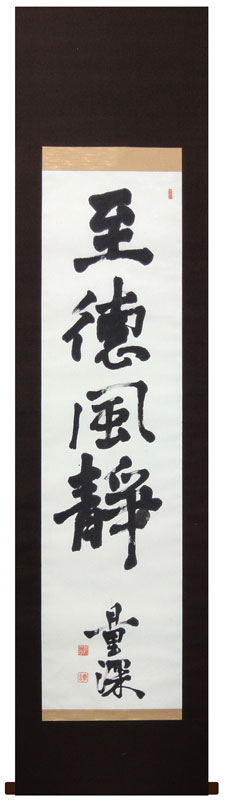 至德風靜
量深